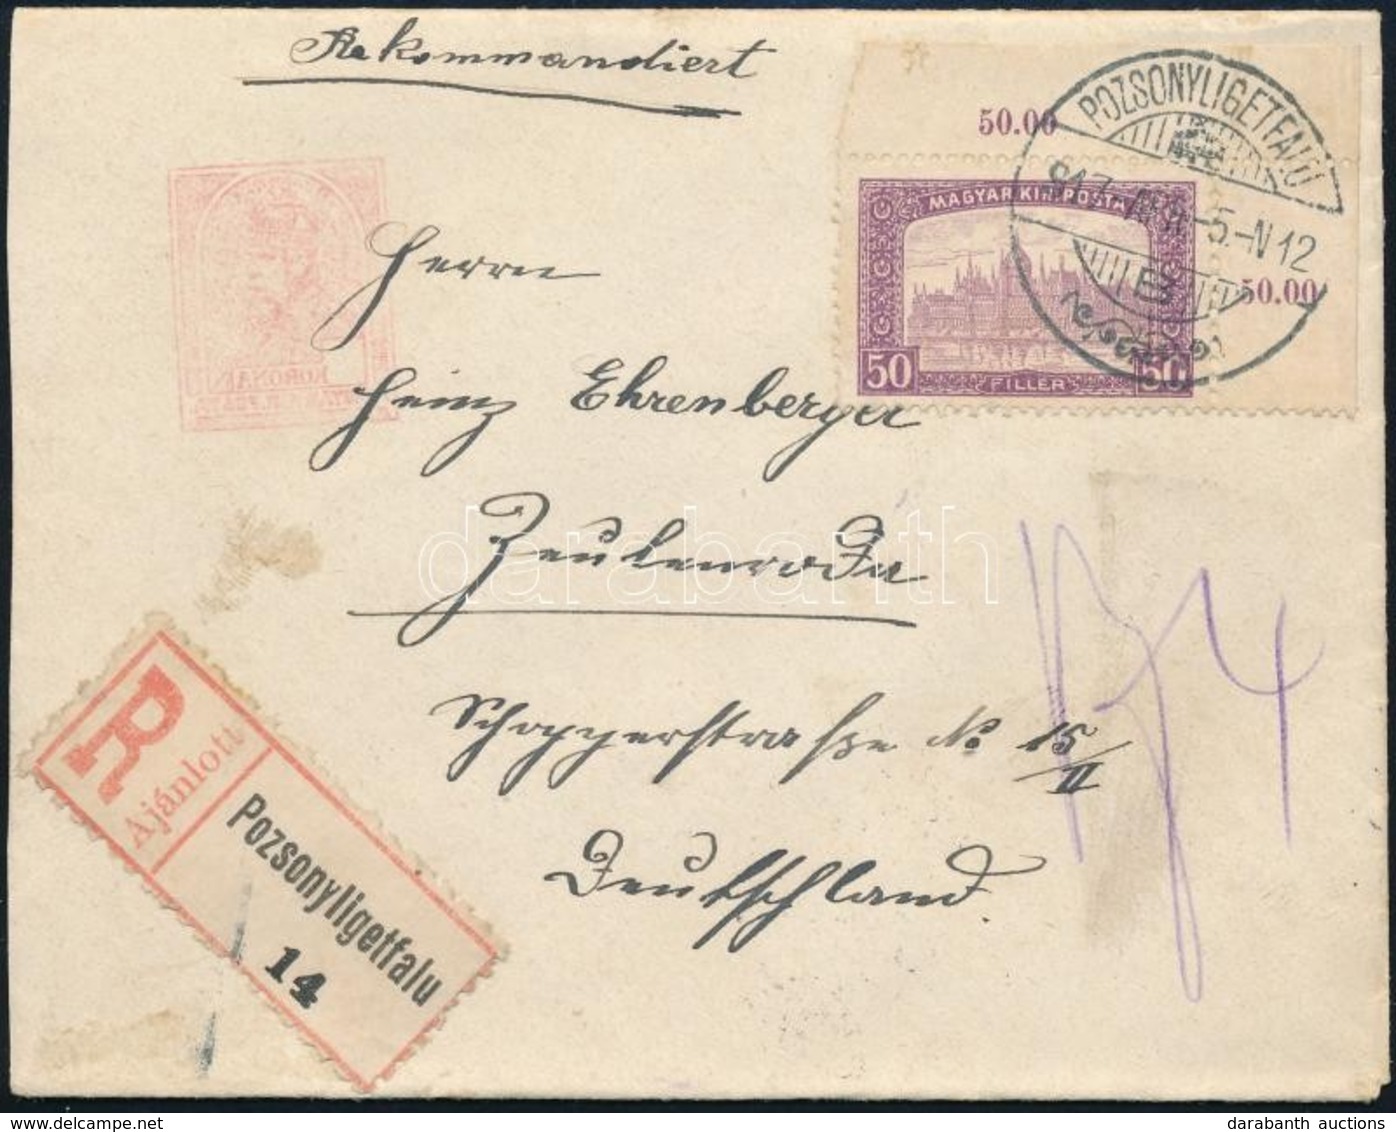 Rekommandiert
50.00
POZSONYLIGETFALU
917
-5.-N12
50.00
MAGYAR KIR. POSTA
50 FILLER 50
KORONA
Herrn
Heinz Ehrenberger
Zeulenroda
darabanth
Schopperstraße No 15/II
Deutschland
R
Ajánlott
Pozsonyligetfalu
14
darabanth auctions